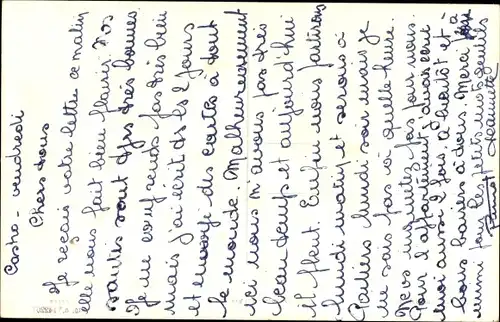 Castro - vendredi
Chers tous
Je reçois votre lettre ce matin
elle nous fait bien plaisir. Nos
santés sont très bonnes.
Je ne comprends pas très bien
mais j'ai écrit ds les 2 jours
et envoyé des cartes à tout
le monde. Malheureusement
ici nous n'avons pas très
beau temps et aujourd'hui
il pleut. Enfin nous partirons
lundi matin et serons à
lundi soir mais je
ne sais pas à quelle heure.
Ne vous inquiétez pas pour nous.
Pour l'appartement j'avais écrit
moi aussi 2 fois. à bientôt et
bons baisers à tous. Merci à
mimi pour les petits mots gentils